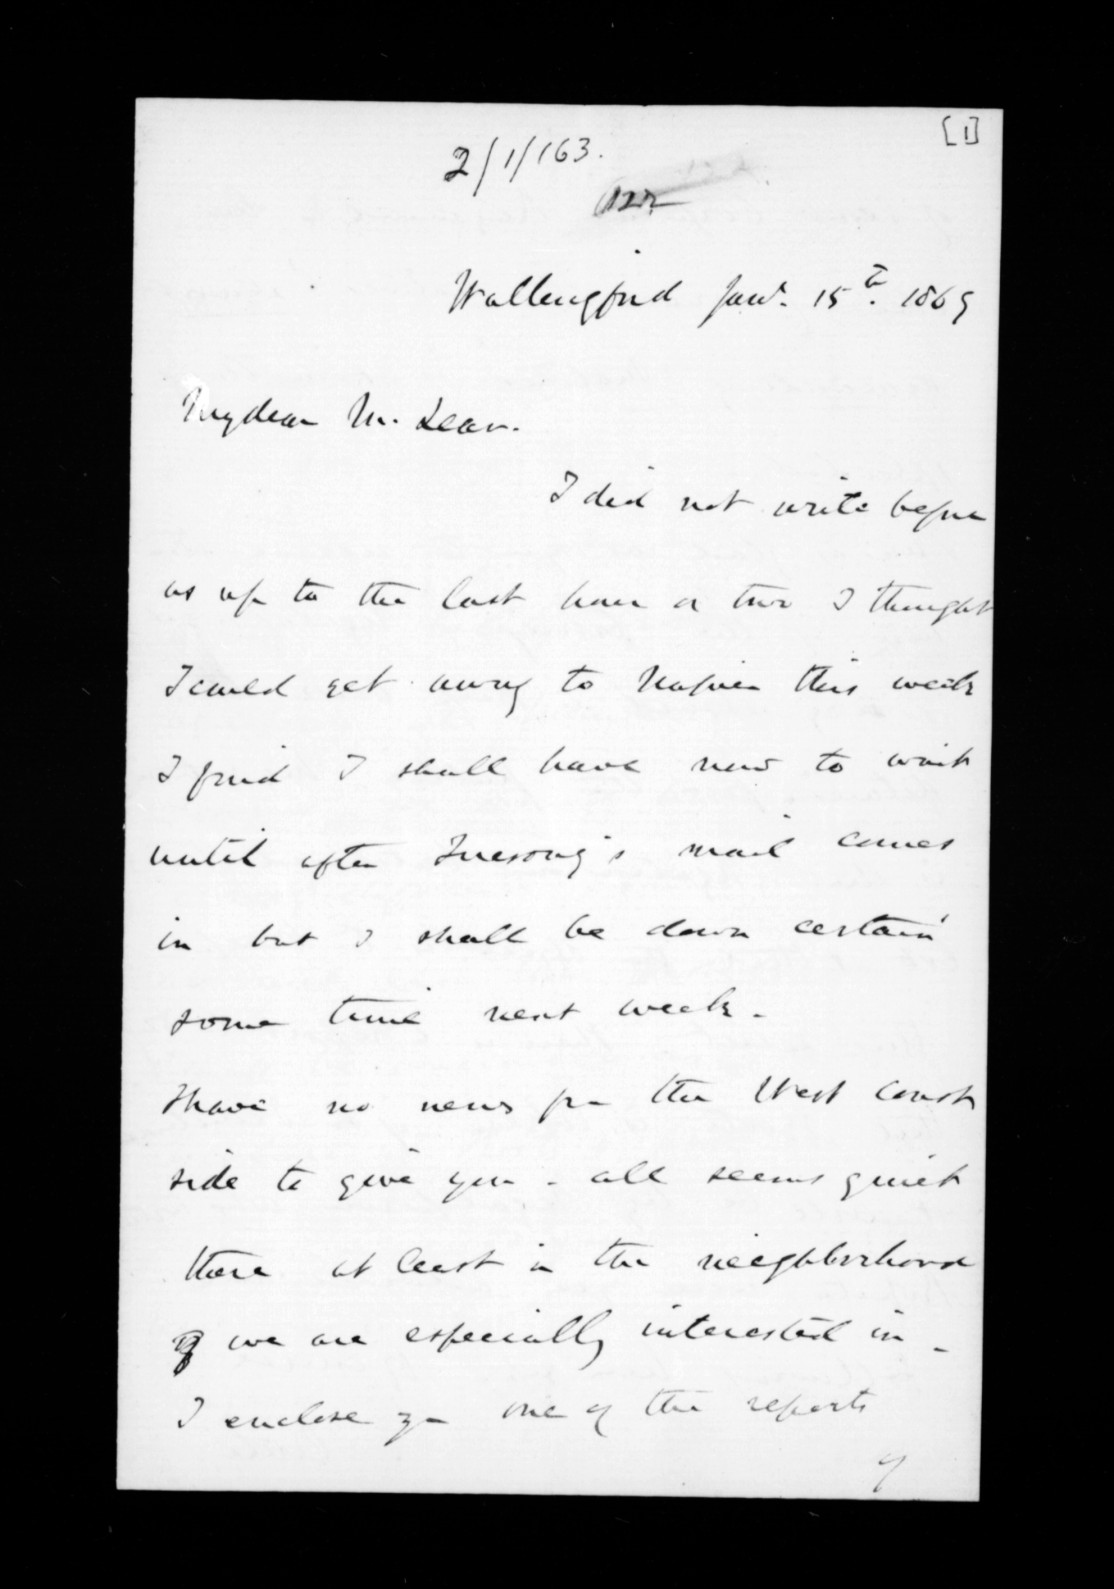 [1]
2/1/163.
Wallingford Jany. 15th. 1869
My dear McLean.
I did not write before
as up to the last hour or two I thought
I could get away to Napier this week
I find I shall have now to wait
until after Tuesday's mail comes
in but I shall be down certain
some time next week.
I have no news for the West Coast
side to give you - all seems quiet
there at least in the neighborhood
we are especially interested in.
I enclose you one of the reports
of